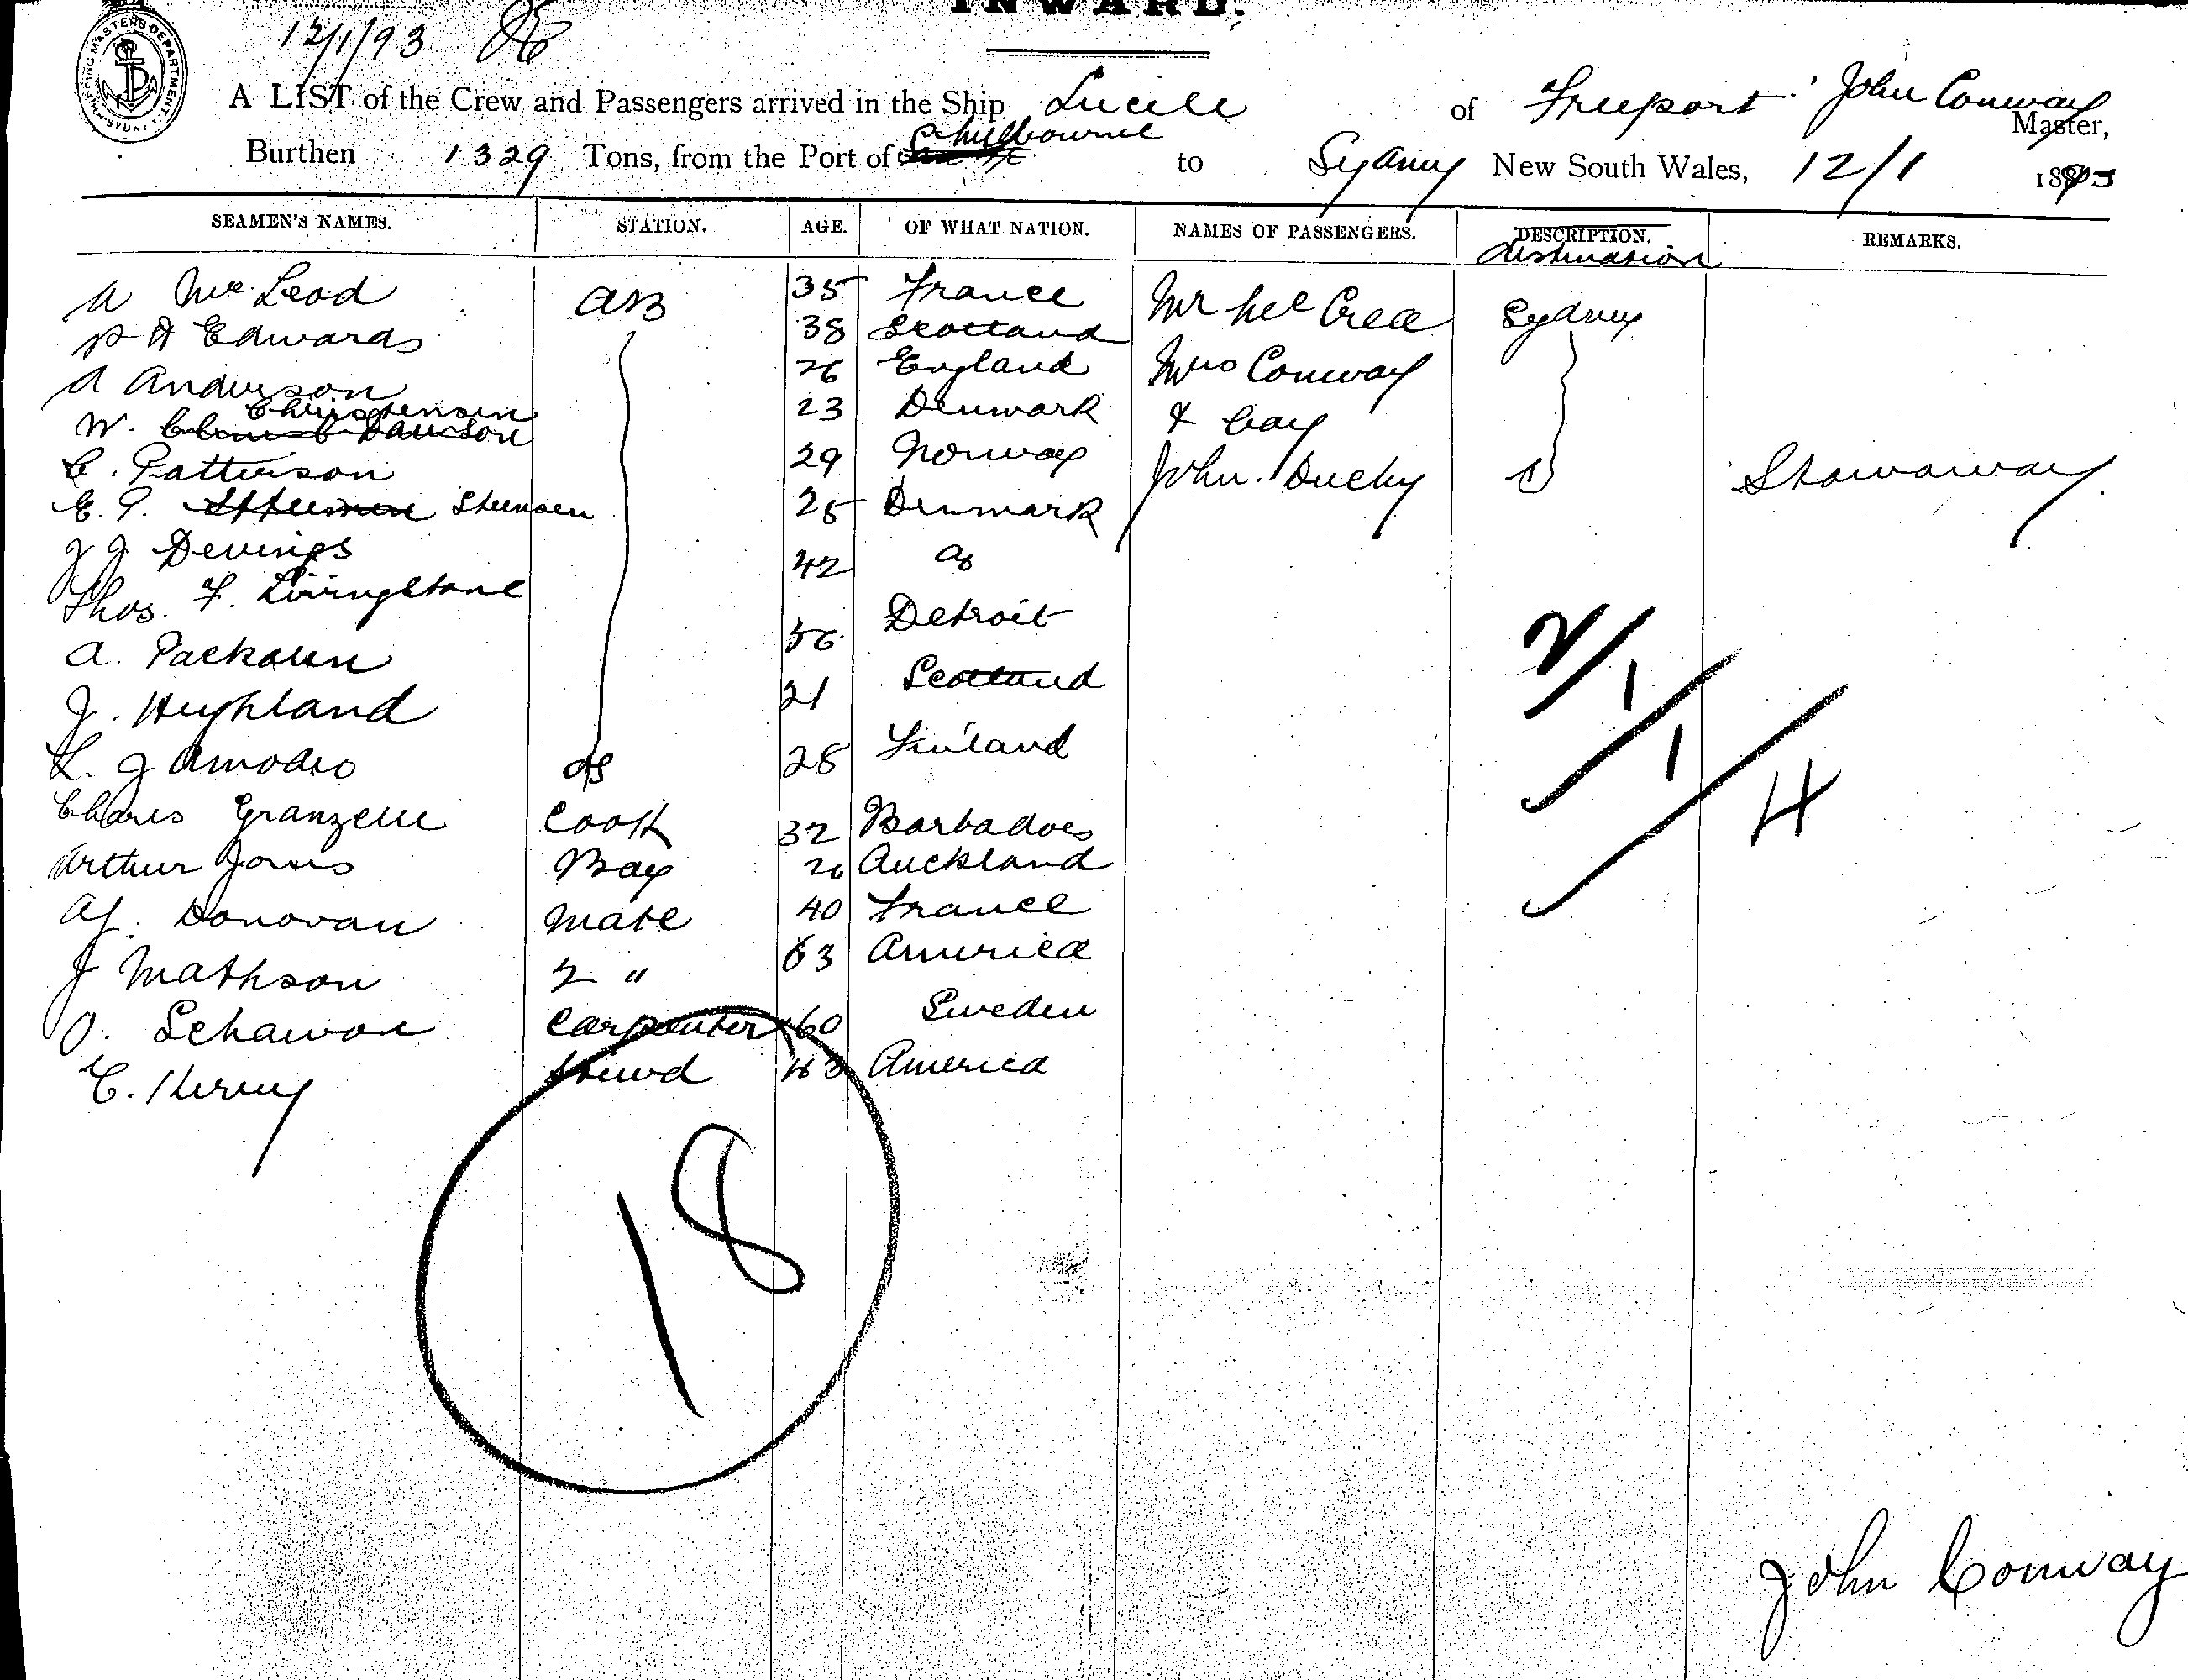 INWARD.
SHIPPING MASTERS DEPARTMENT SYDNEY
12/1/93
A LIST of the Crew and Passengers arrived in the Ship Lucile of Freeport John Conway Master,
Burthen 1329 Tons, from the Port of to Sydney New South Wales, 12/1 1893
SEAMEN'S NAMES. STATION. AGE. OF WHAT NATION. NAMES OF PASSENGERS. DESCRIPTION. REMARKS.
destination
A McLeod AB 35 France Mr McCrea Sydney
Edwards 38 Scotland
A Anderson 26 England Mrs Conway
W. Christensen 23 Denmark & boy
C. Patterson 29 Norway John Stowaway
E. P. Steensen 25 Denmark
J J Devings 42 do
Thos. F. Livingstone
36 Detroit
A.
J. Highland 21 Scotland
L. J Amodeo do 28 Finland
Granzelle Cook 32 Barbadoes
Arthur Jones Boy 26 Auckland
Donovan Mate 40 France
J Mathson 2 " 63 America
O. Carpenter 60 Sweden
C. Stewd 43 America
2/1/1/4
18
John Conway